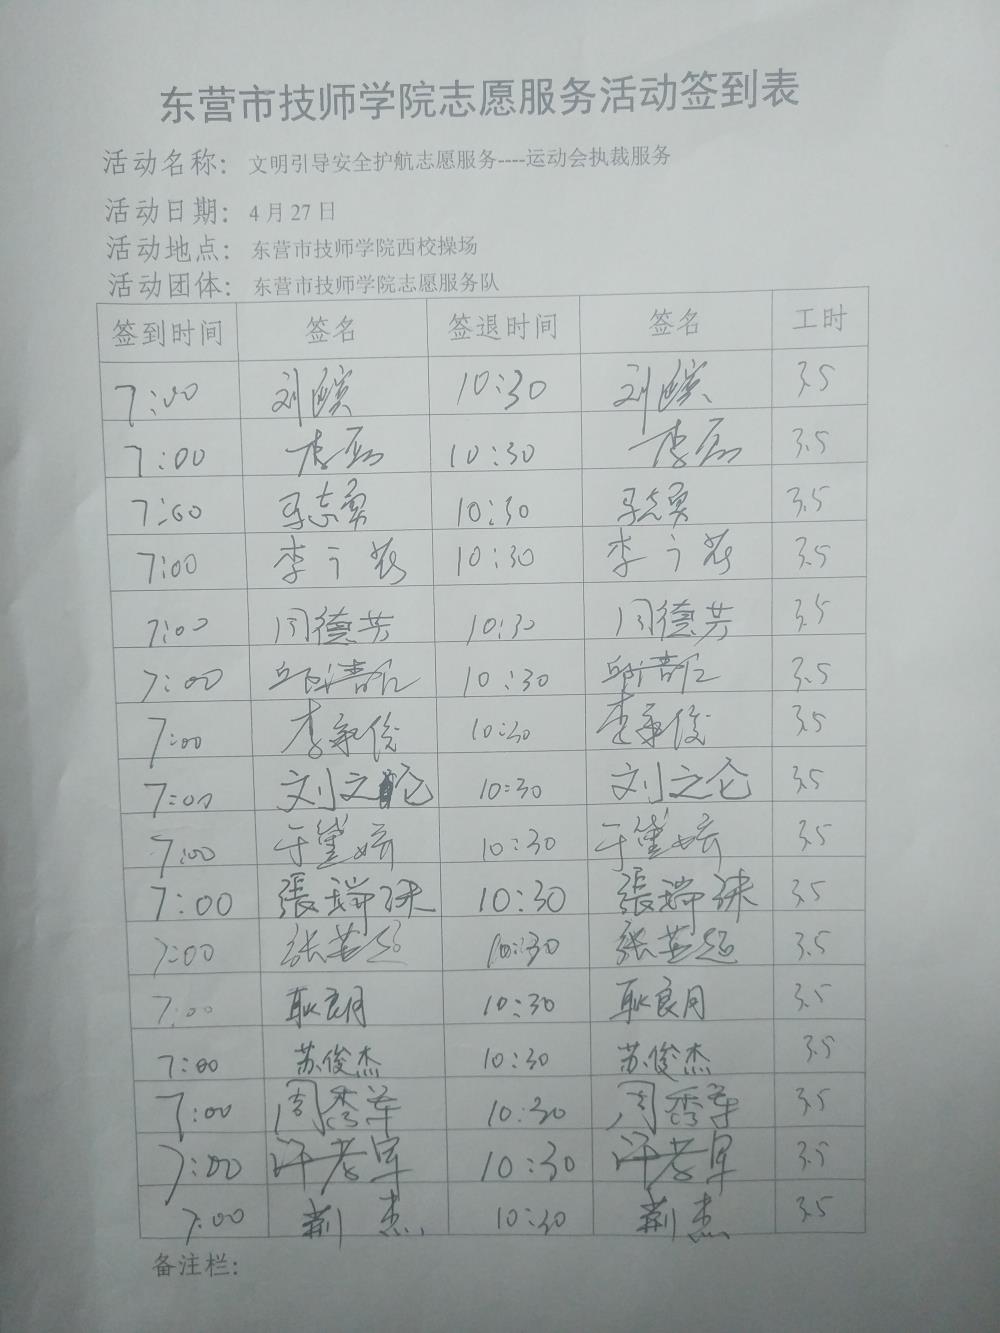 东营市技师学院志愿服务活动签到表
活动名称： 文明引导安全护航志愿服务----运动会执裁服务
活动日期： 4月27日
活动地点： 东营市技师学院西校操场
活动团体： 东营市技师学院志愿服务队
签到时间 签名 签退时间 签名 工时
7:00 刘 10:30 刘 3.5
7:00 李磊 10:30 李磊 3.5
7:00 马志勇 10:30 马志勇 3.5
7:00 李 10:30 李 3.5
7:00 闫德芳 10:30 闫德芳 3.5
7:00 10:30 3.5
7:00 李承俊 10:30 李承俊 3.5
7:00 刘之仑 10:30 刘之仑 3.5
7:00 于黛婷 10:30 于黛婷 3.5
7:00 張瑞珠 10:30 張瑞珠 3.5
7:00 张英超 10:30 张英超 3.5
7:00 耿良月 10:30 耿良月 3.5
7:00 苏俊杰 10:30 苏俊杰 3.5
7:00 周秀 10:30 周秀 3.5
7:00 许孝军 10:30 许孝军 3.5
7:00 荆杰 10:30 荆杰 3.5
备注栏：